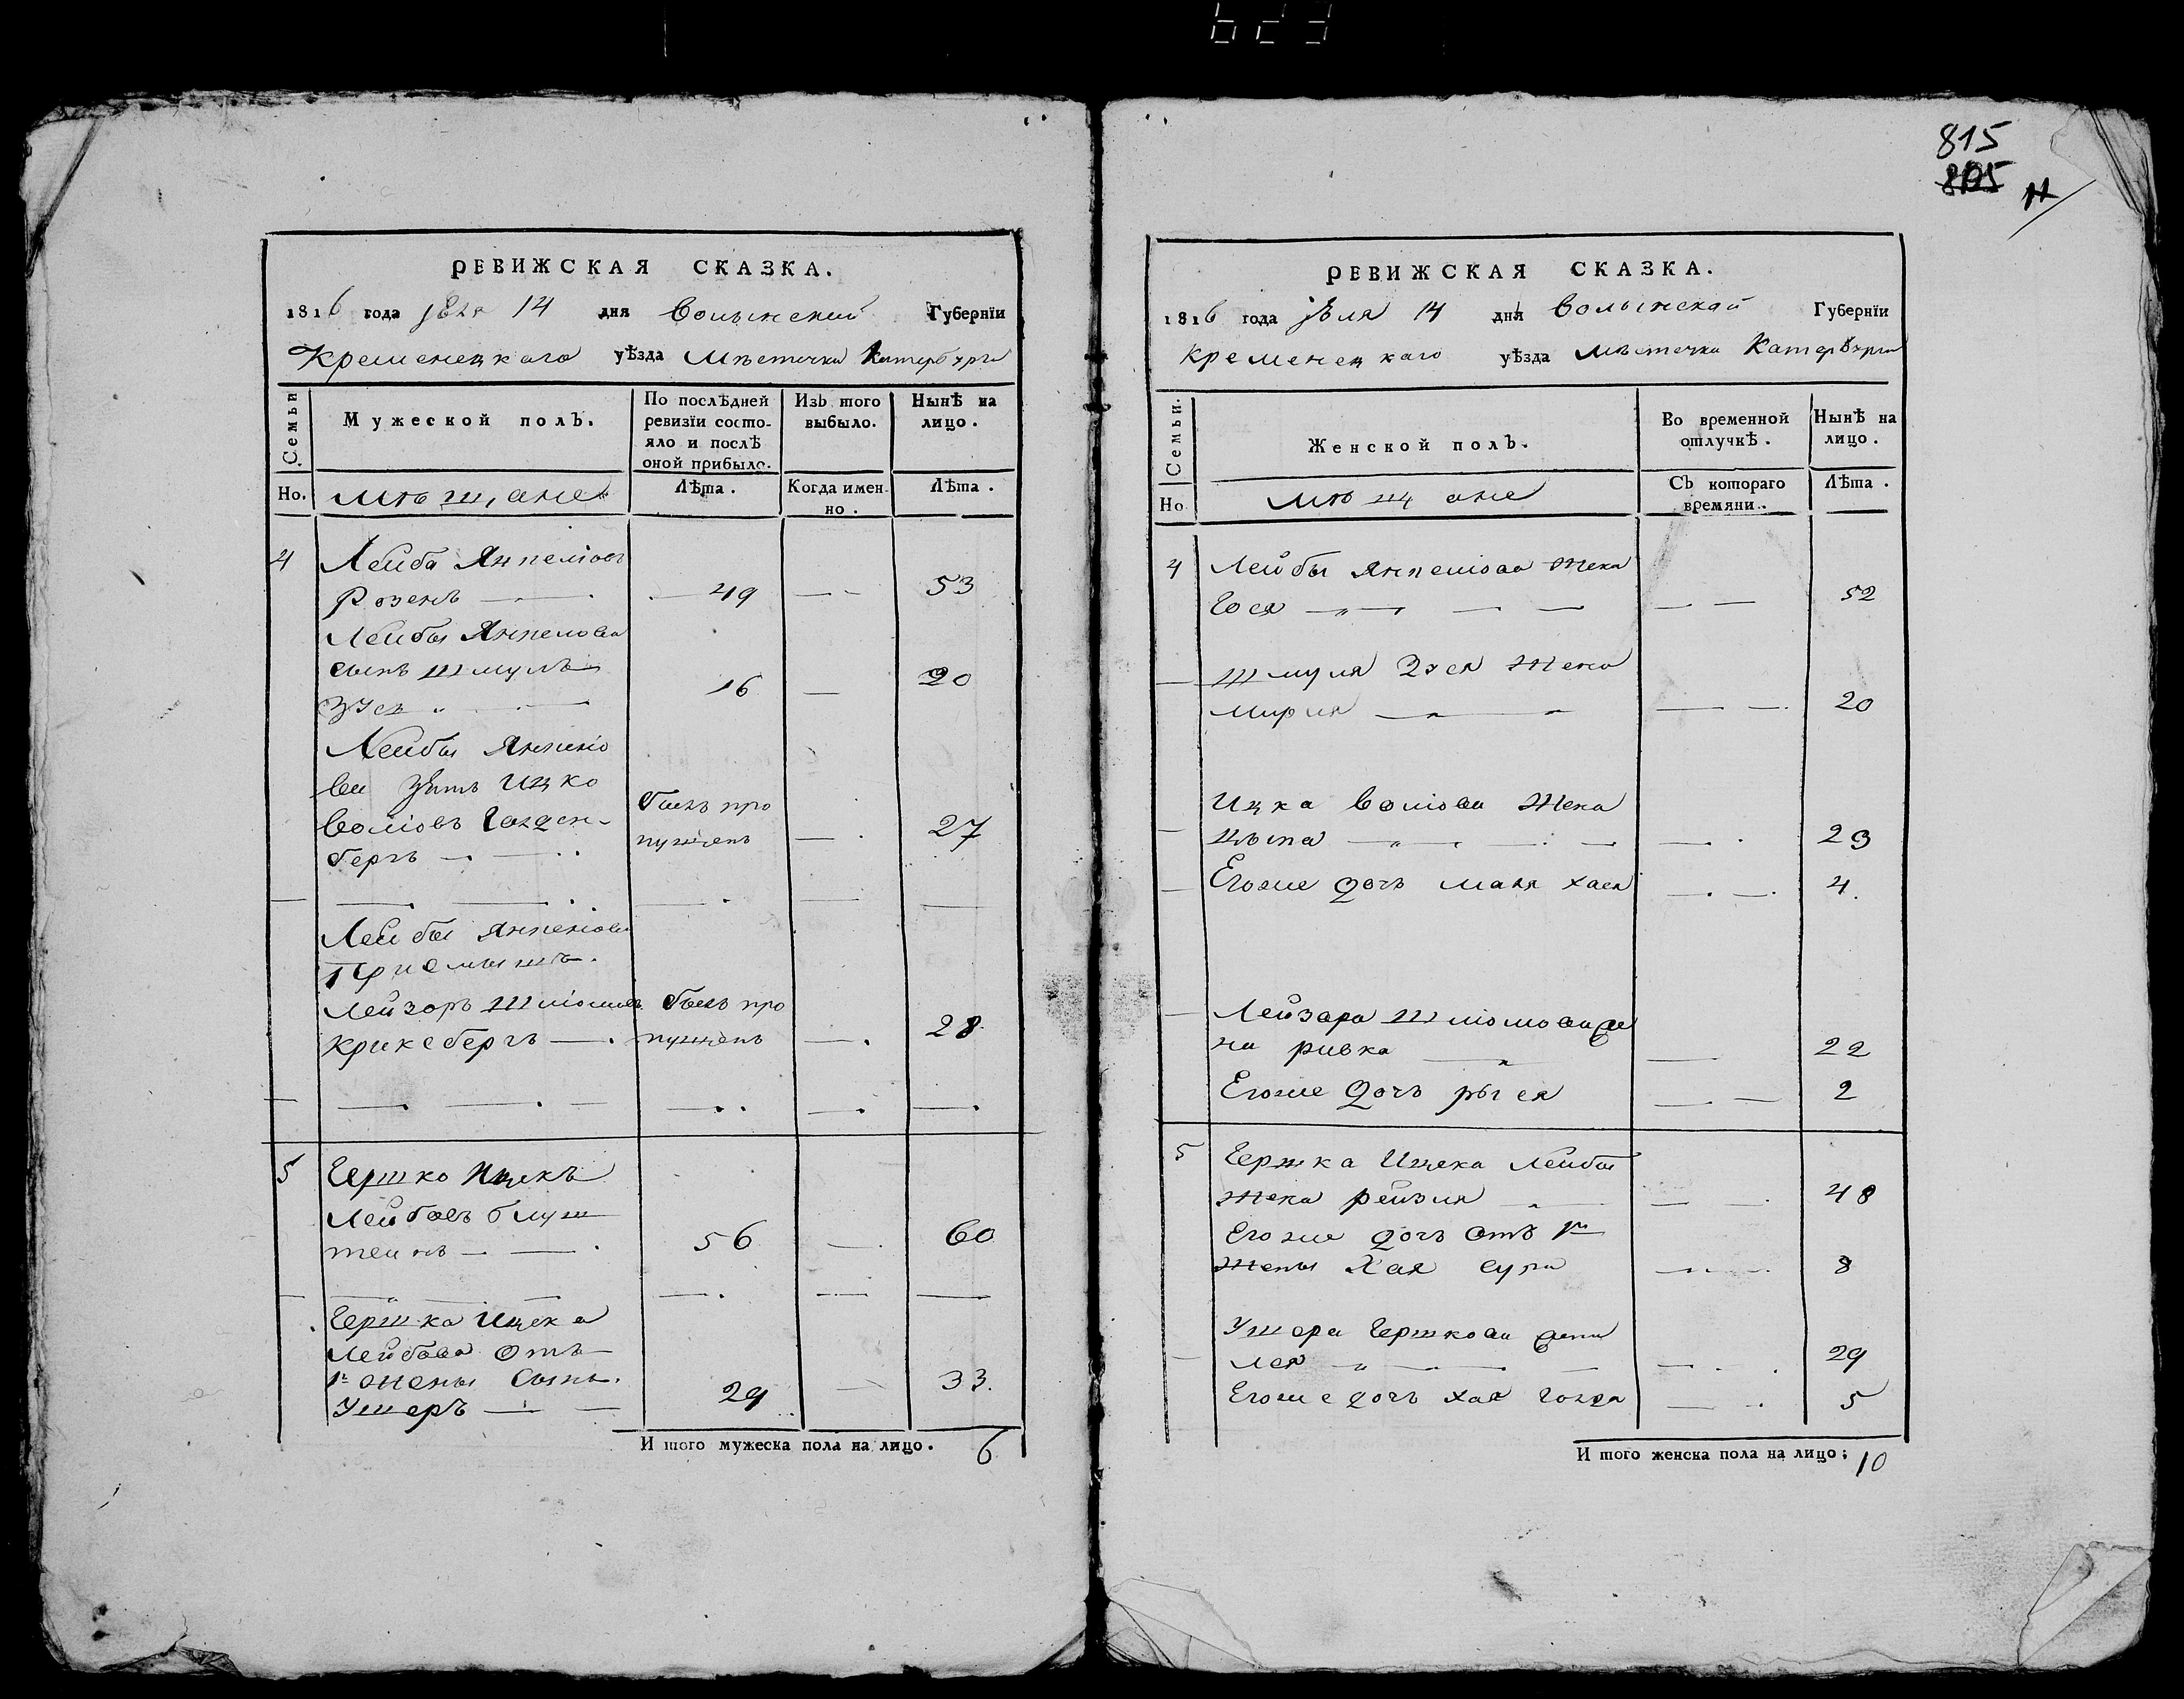 623
815
805
РЕВИЖСКАЯ СКАЗКА.
1816 года 14 дня Волынской Губернїи
Кременецкаго уѣзда мѣстечка Катербурга
Семьи
Мужеской полъ.
По послѣдней ревизїи состояло и послѣ оной прибыло.
Изъ того выбыло.
Нынѣ на лицо.
Но.
мѣщане
Лѣта.
Когда именно.
Лѣта.
4
Лейба Янкелiовъ
Розенъ 49 53
Лейбы Янкелова
сынъ Шмуль
Зусь 16 20
Лейбы Янкелiо
ва зять Ицко
Волiовъ Голден-
бергъ
былъ про
пущенъ 27
Лейбы Янкелiова
Приемышъ
Лейзоръ Шлiомовъ
Криксбергъ
былъ про
пущенъ 28
5
Гершко Ицекъ
Лейбовъ Блуш
теинъ 56 60
Гершка Ицека
Лейбова отъ
1й жены сынъ
Ушеръ 29 33.
И того мужеска пола на лицо. 6
РЕВИЖСКАЯ СКАЗКА.
1816 года 14 дня Волынской Губернїи
Кременецкаго уѣзда мѣстечка Катербурга
Семьи.
Женской полъ.
Во временной отлучкѣ.
Нынѣ на лицо.
Но
мѣщане
Съ котораго времяни.
Лѣта.
4
Лейбы Янкелiова жена
Гося 52
Шмуля Зуся жена
Мирля 20
Ицка Волiова жена
Цыпа 23
Егоже дочь Маля Хася 4.
Лейзара Шлiомова же
на Ривка 22
Егоже дочь Рыся 2
5
Гершка Ицека Лейбы
жена Рейзля 48
Егоже дочь отъ 1й
жены Хая Сура 8
Ушера Гершкова жена
Лея 29
Егоже дочь Хая Голда 5
И того женска пола на лицо; 10